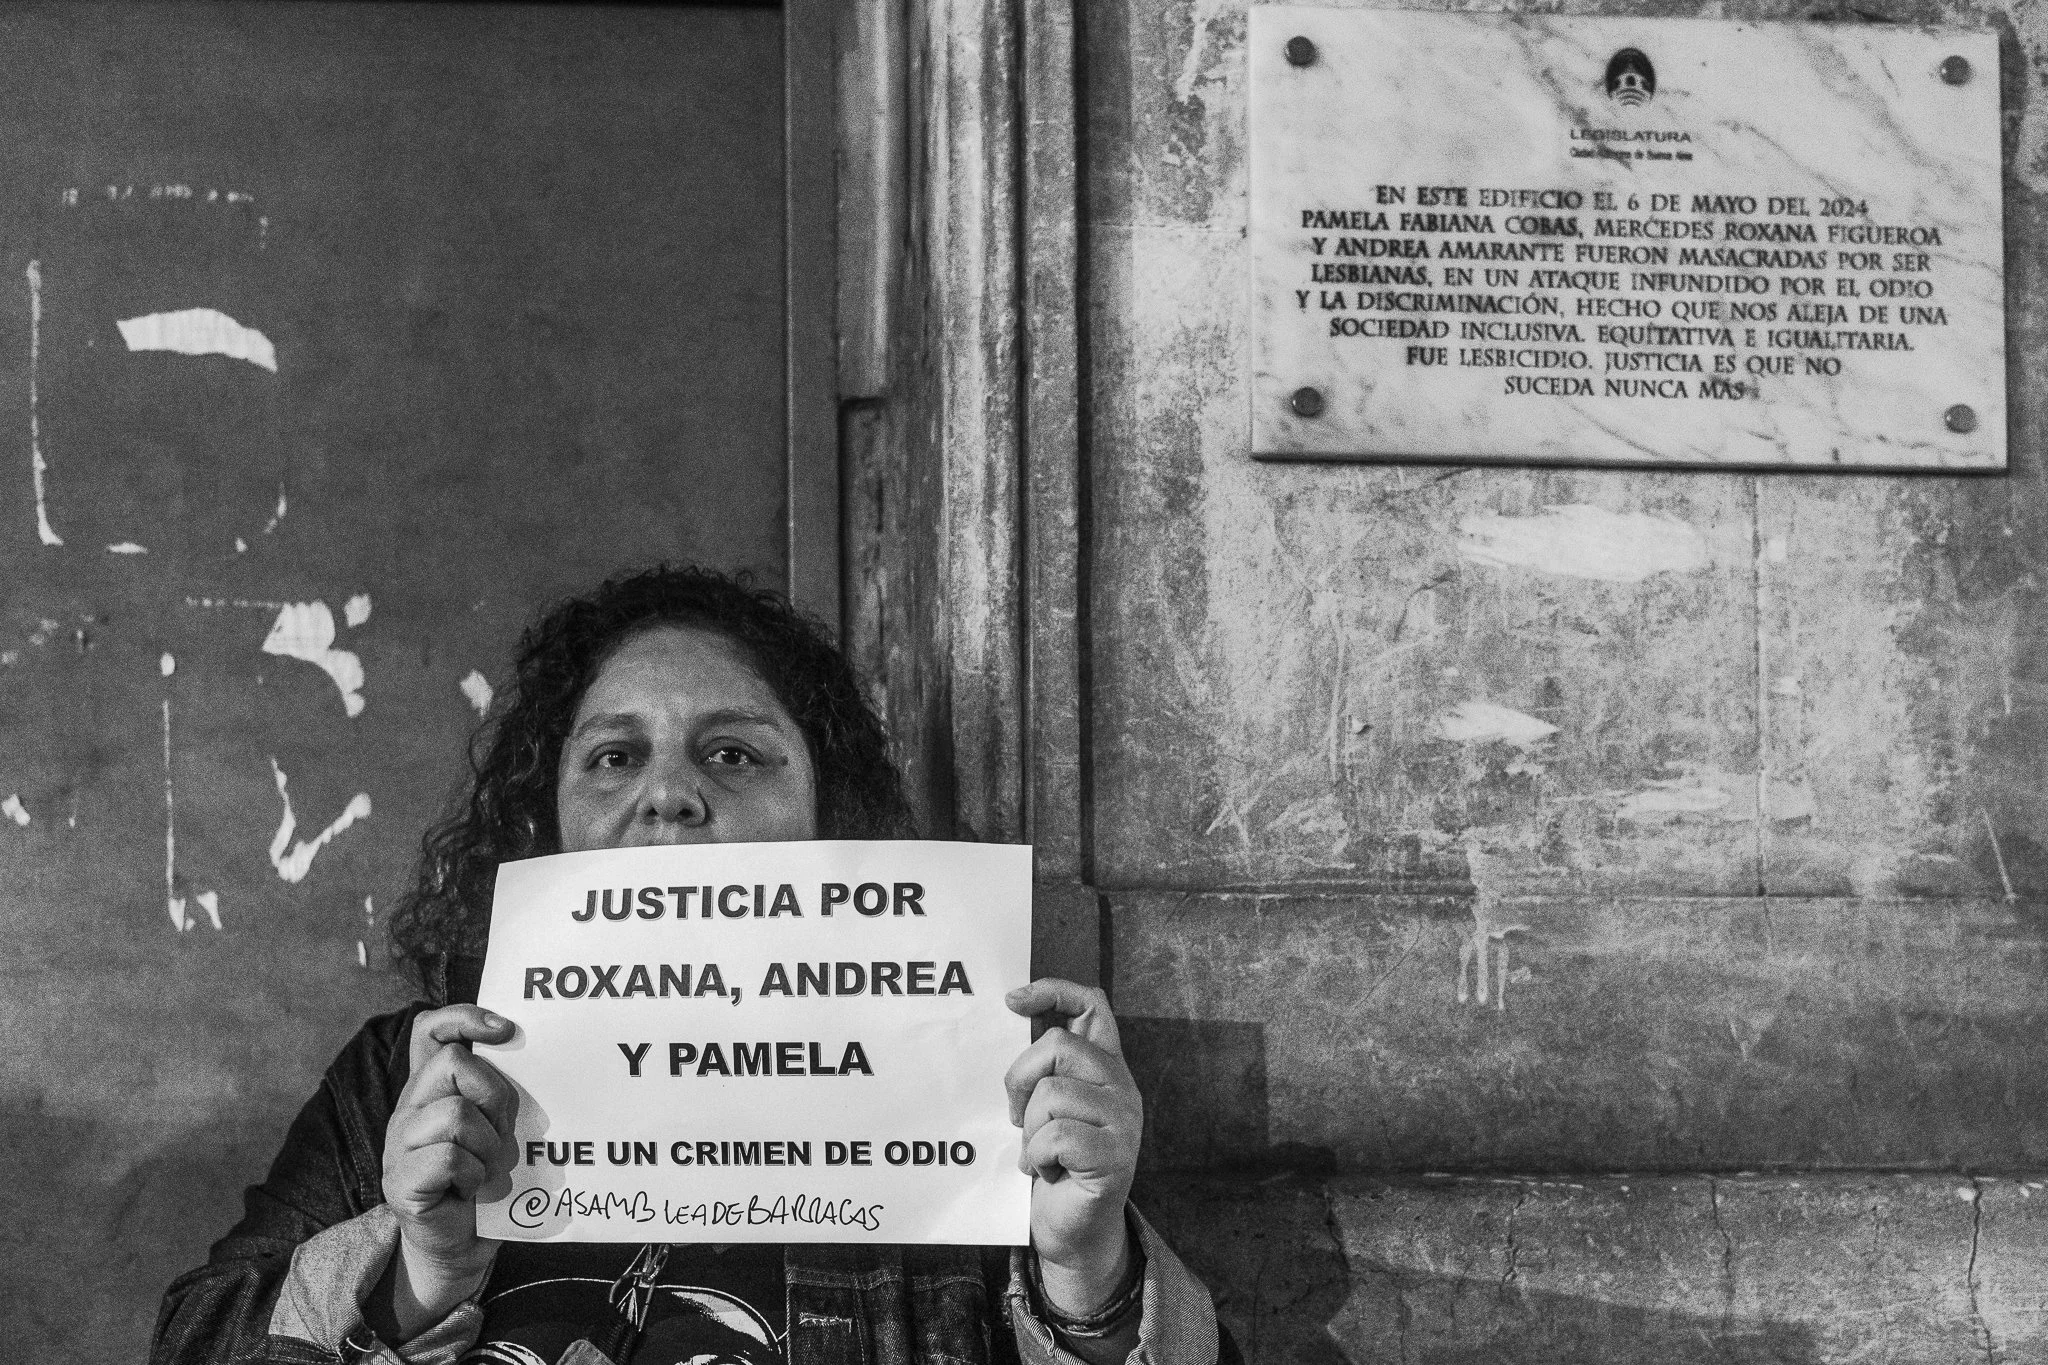 LEGISLATURA
Ciudad Autónoma de Buenos Aires
EN ESTE EDIFICIO EL 6 DE MAYO DEL 2024
PAMELA FABIANA COBAS, MERCEDES ROXANA FIGUEROA
Y ANDREA AMARANTE FUERON MASACRADAS POR SER
LESBIANAS, EN UN ATAQUE INFUNDIDO POR EL ODIO
Y LA DISCRIMINACIÓN, HECHO QUE NOS ALEJA DE UNA
SOCIEDAD INCLUSIVA, EQUITATIVA E IGUALITARIA.
FUE LESBICIDIO. JUSTICIA ES QUE NO
SUCEDA NUNCA MÁS
JUSTICIA POR
ROXANA, ANDREA
Y PAMELA
FUE UN CRIMEN DE ODIO
@ASAMBLEADEBARRACAS